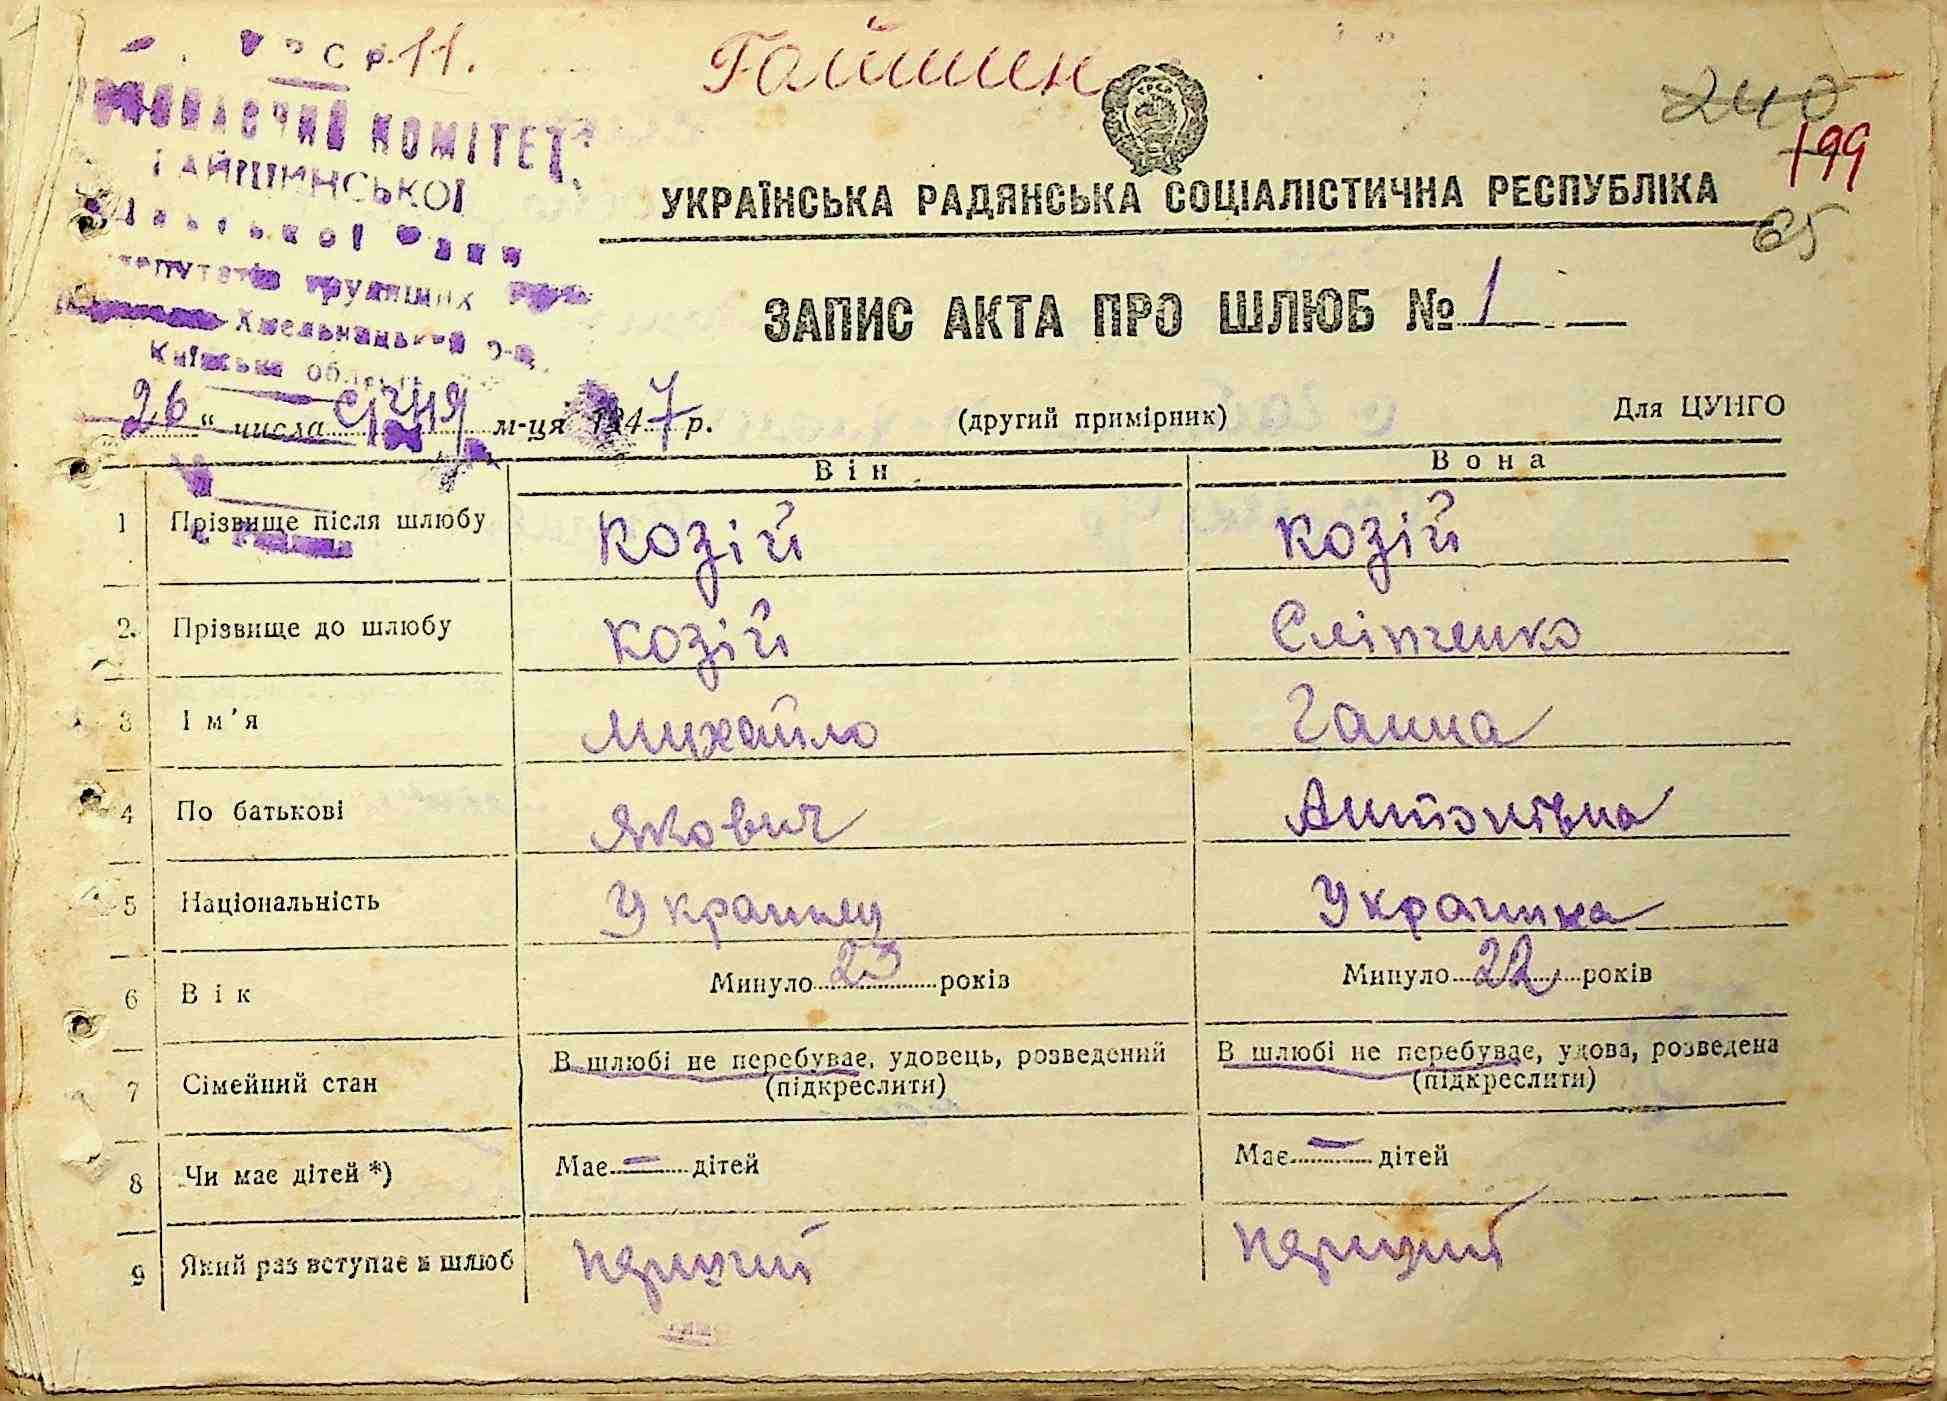 УРСР 11.
Гайшин
ВИКОНАВЧИЙ КОМІТЕТ
ГАЙШИНСЬКОЇ
Сільської Ради
депутатів трудящих
Хмельницький р-н
Київська область
240
199
65
УКРАЇНСЬКА РАДЯНСЬКА СОЦІАЛІСТИЧНА РЕСПУБЛІКА
ЗАПИС АКТА ПРО ШЛЮБ № 1
26 " числа січня м-ця 1947 р. (другий примірник) Для ЦУНГО
Він Вона
1 Прізвище після шлюбу Козій Козій
2. Прізвище до шлюбу Козій Сліпченко
3 Ім'я Михайло Ганна
4 По батькові Якович Антонівна
5 Національність Украинец Украинка
6 Вік Минуло 23 років Минуло 22 років
7 Сімейний стан В шлюбі не перебуває, удовець, розведений (підкреслити) В шлюбі не перебуває, удова, розведена (підкреслити)
8 Чи має дітей *) Має — дітей Має — дітей
9 Який раз вступає в шлюб перший перший